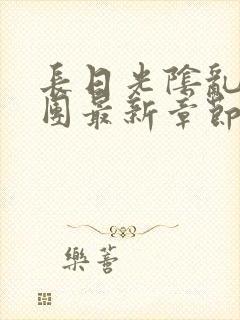 長日光陰亂
團最新章節
樂薈